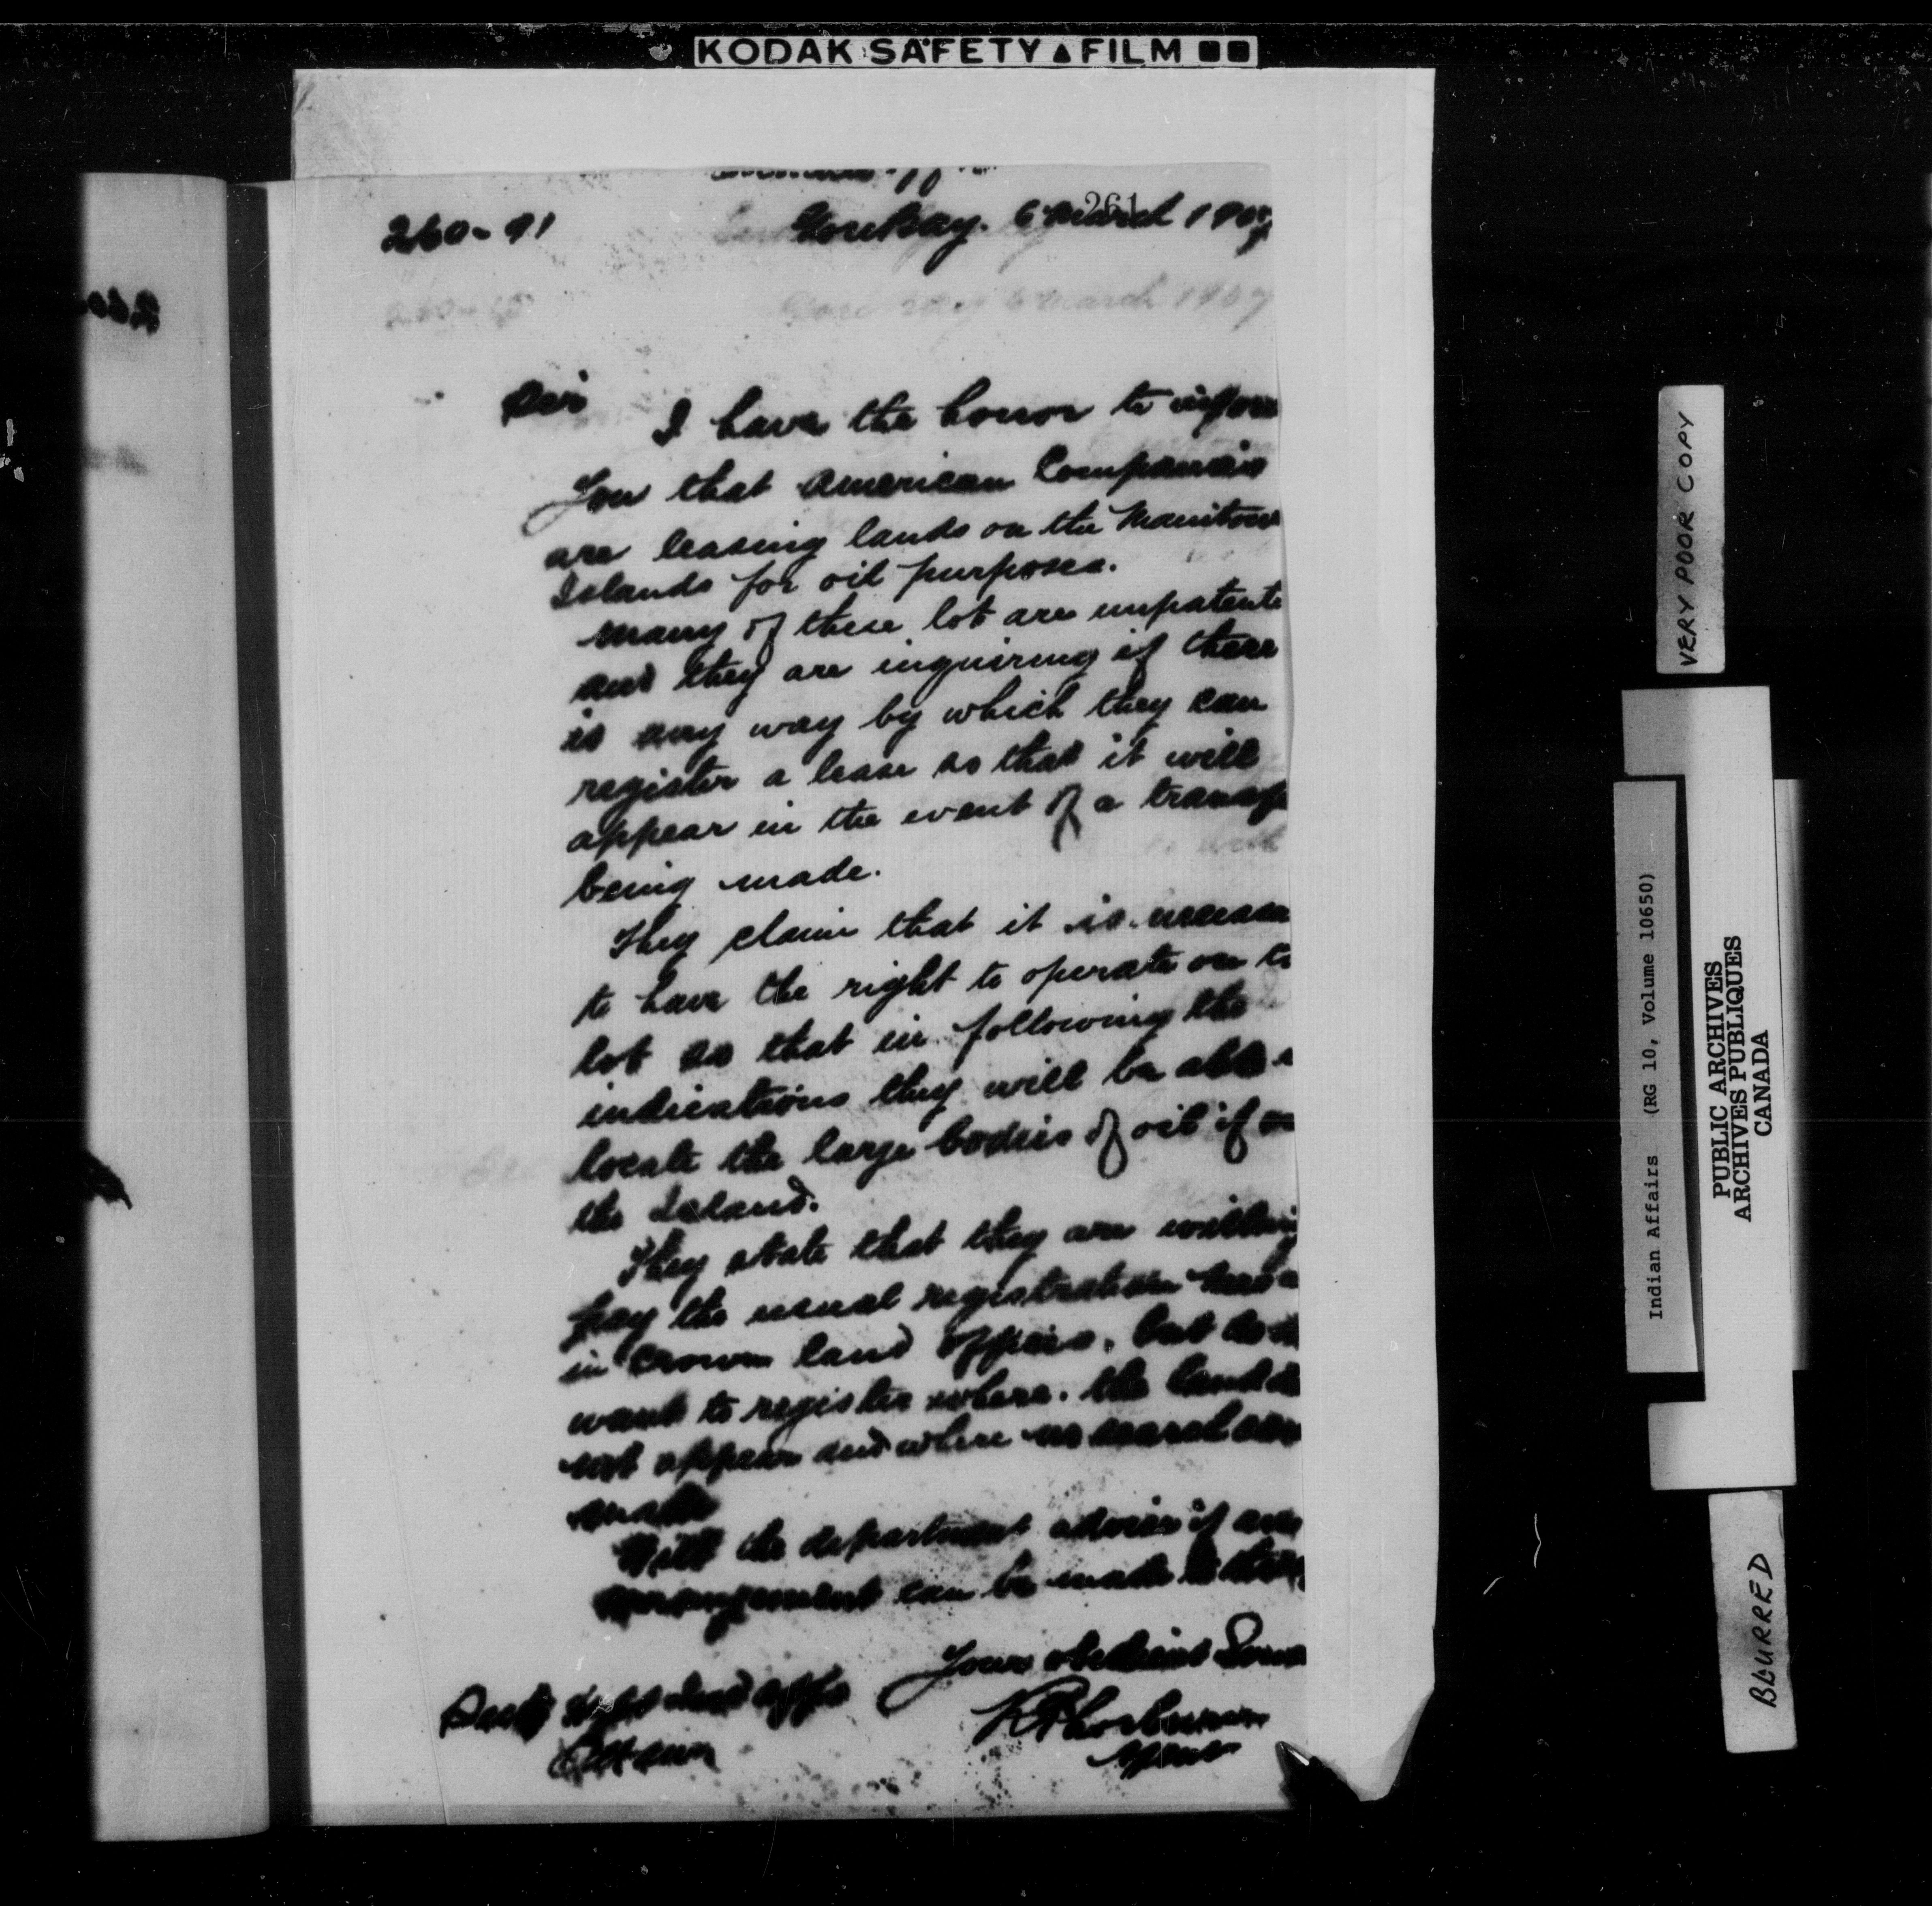 KODAK SAFETY FILM
261
260-91 Gore Bay. 6 March 1907
Gore Bay 6 March 1907
Sir
I have the honor to inform
You that American Companies
are leasing lands on the Manitou
Islands for oil purposes.
Many of these lot are unpatente
and they are inquiring if there
is any way by which they can
register a lease so that it will
appear in the event of a transf
being made.
They claim that it is necessa
to have the right to operate on
lot so that in following the
indications they will be able
locate the large bodies of oil if on
the Island.
They state that they are willing
pay the usual registration
in Crown land offices, but do
want to register where the land
not appear and where no search can
made
Will the department advise if any
arrangement can be made
Your obedient Serva
R Thorburn
Agent
Secy Dept Ind Affs
Ottawa
VERY POOR COPY
Indian Affairs (RG 10, Volume 10650)
PUBLIC ARCHIVES
ARCHIVES PUBLIQUES
CANADA
BLURRED